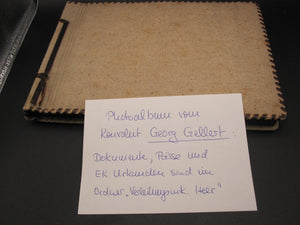 Photoalbum vom
Konvolut Georg Gellert:
Dokumente, Pässe und
EK Urkunden sind im
Ordner „Verleihungsurk. Heer"